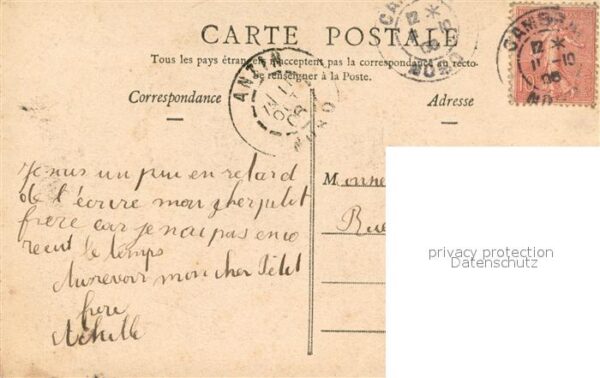 CARTE POSTALE
Tous les pays étrangers n'acceptent pas la correspondance au recto-
Se renseigner à la Poste.
CAMBRAI
12 *
NORD
CAMBRAI
12 *
11 -10
06
NORD
ANZIN
NORD
Correspondance
Adresse
Je suis un peu en retard
de t'écrire mon cher petit
frère car je n'ai pas enco
le temps
Aurevoir mon cher Petit
frere
Achille
M
Rue
privacy protection
Datenschutz